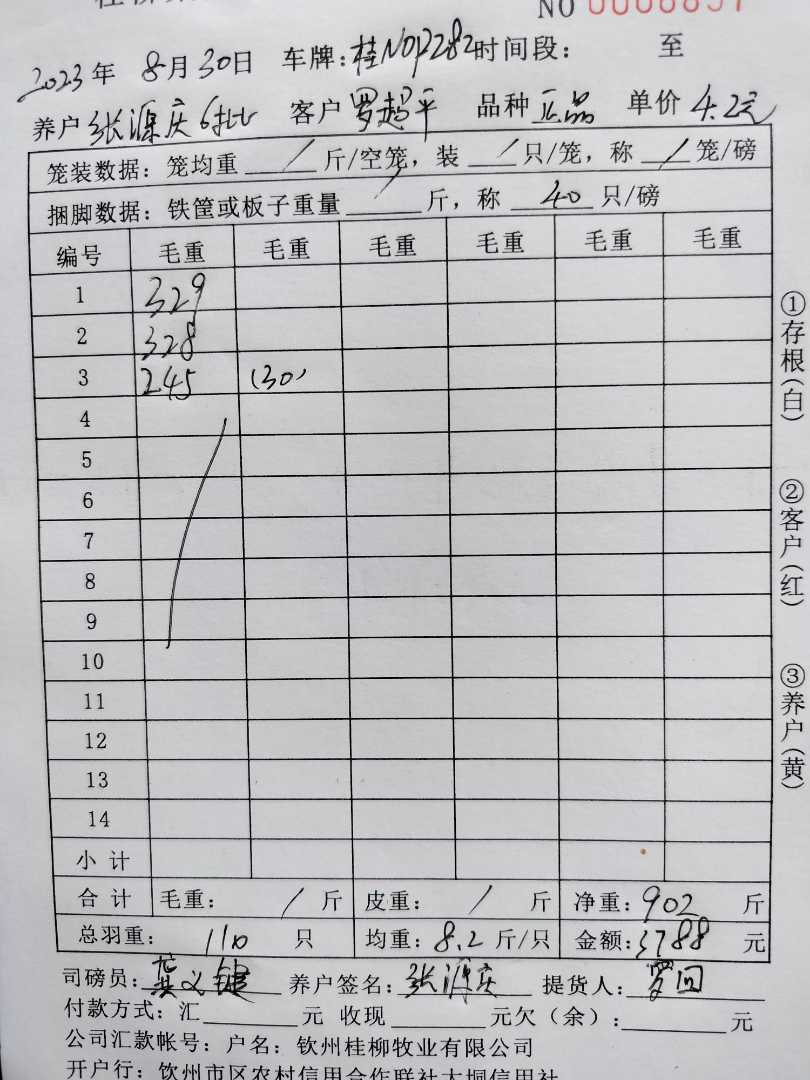 NO 0006857
2023年 8月30日 车牌:桂N0P282时间段: 至
养户 张源庆6批 客户 罗超平 品种 正品 单价 4.2元
笼装数据:笼均重 / 斤/空笼,装 / 只/笼,称 / 笼/磅
捆脚数据:铁筐或板子重量 / 斤,称 40 只/磅
编号 毛重 毛重 毛重 毛重 毛重 毛重
1 329
2 328
3 245 (30)
4
5
6
7
8
9
10
11
12
13
14
小计
合计 毛重: / 斤 皮重: / 斤 净重:902 斤
总羽重: 110 只 均重:8.2 斤/只 金额:3788 元
司磅员:龚义键 养户签名:张源庆 提货人:罗
付款方式:汇 元 收现 元欠(余): 元
公司汇款帐号:户名:钦州桂柳牧业有限公司
开户行:钦州市区农村信用合作联社大垌信用社
①存根(白)
②客户(红)
③养户(黄)